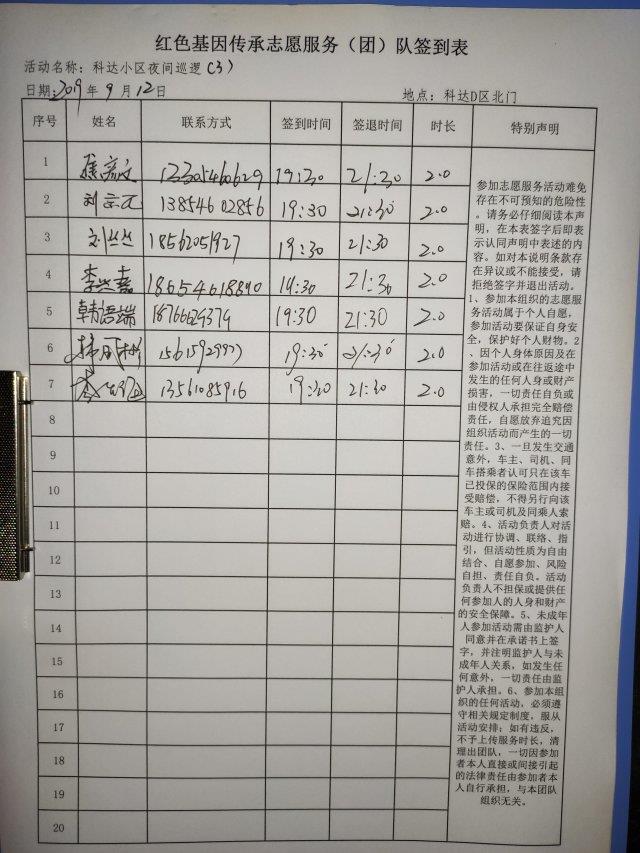 红色基因传承志愿服务（团）队签到表
活动名称：科达小区夜间巡逻（3）
日期：2019年9月12日 地点：科达D区北门
序号 姓名 联系方式 签到时间 签退时间 时长 特别声明
1 19:30 21:30 2.0
2 刘宗元 13854602856 19:30 21:30 2.0
3 刘丛丛 18562051927 19:30 21:30 2.0
4 李兴嘉 18654618890 19:30 21:30 2.0
5 韩语端 19:30 21:30 2.0
6 19:30 21:30 2.0
7 13561085916 19:30 21:30 2.0
8
9
10
11
12
13
14
15
16
17
18
19
20
参加志愿服务活动难免
存在不可预知的危险性
。请务必仔细阅读本声
明，在本表签字后即表
示认同声明中表述的内
容。如对本说明条款存
在异议或不能接受，请
拒绝签字并退出活动。
1、参加本组织的志愿服
务活动属于个人自愿，
参加活动要保证自身安
全，保护好个人财物。2
、因个人身体原因及在
参加活动或在往返途中
发生的任何人身或财产
损害，一切责任自负或
由侵权人承担完全赔偿
责任，自愿放弃追究因
组织活动而产生的一切
责任。3、一旦发生交通
意外，车主、司机、同
车搭乘者认可只在该车
已投保的保险范围内接
受赔偿，不得另行向该
车主或司机及同乘人索
赔。4、活动负责人对活
动进行协调、联络、指
引，但活动性质为自由
结合、自愿参加、风险
自担、责任自负。活动
负责人不担保或提供任
何参加人的人身和财产
的安全保障。5、未成年
人参加活动需由监护人
同意并在承诺书上签
字，并注明监护人与未
成年人关系，如发生任
何意外，一切责任由监
护人承担。6、参加本组
织的任何活动，必须遵
守相关规定制度，服从
活动安排；如有违反，
不予上传服务时长，清
理出团队，一切因参加
者本人直接或间接引起
的法律责任由参加者本
人自行承担，与本团队
组织无关。